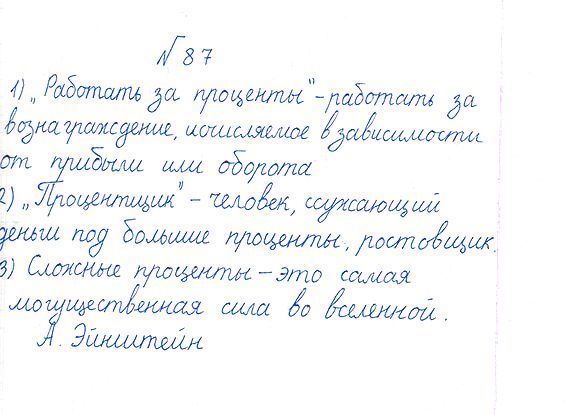 № 87
1) „Работать за проценты" – работать за
вознаграждение, исчисляемое в зависимости
от прибыли или оборота
2) „Процентщик" – человек, ссужающий
деньги под большие проценты, ростовщик.
3) Сложные проценты – это самая
могущественная сила во вселенной.
А. Эйнштейн